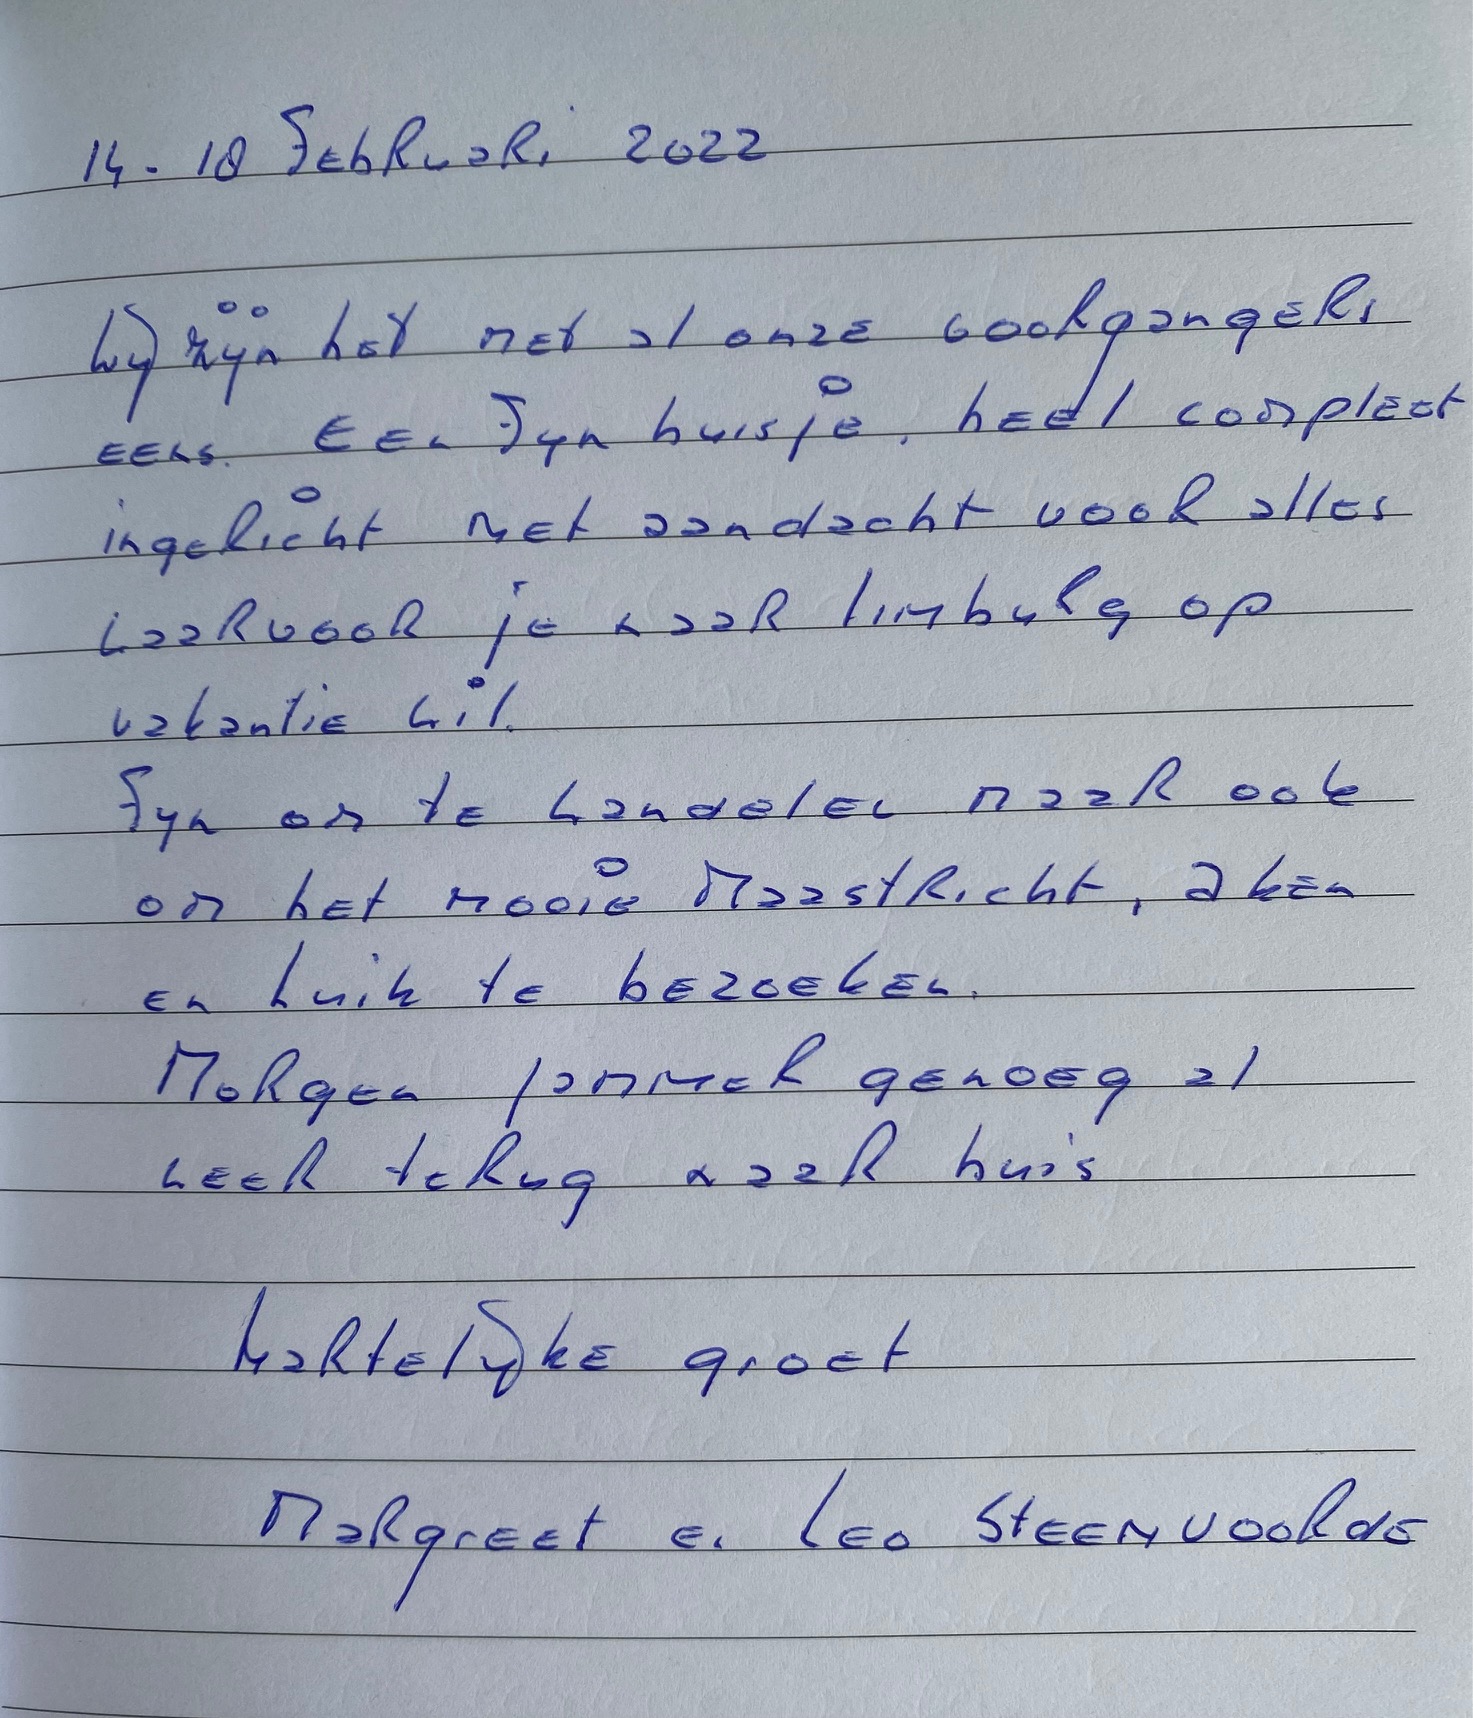 14 - 18 Februari 2022
Wij zijn het met al onze voorgangers
eens. Een fijn huisje, heel compleet
ingericht met aandacht voor alles
waarvoor je naar Limburg op
vakantie wil.
Fijn om te wandelen maar ook
om het mooie Maastricht, Aken
en Luik te bezoeken.
Morgen jammer genoeg al
weer terug naar huis
Hartelijke groet
Margreet en Leo Steenvoorde